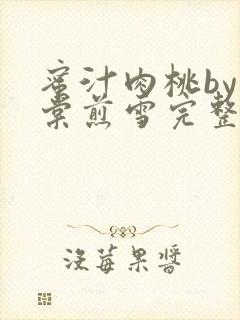 蜜汁肉桃by
棠煎雪完整
没莓果酱